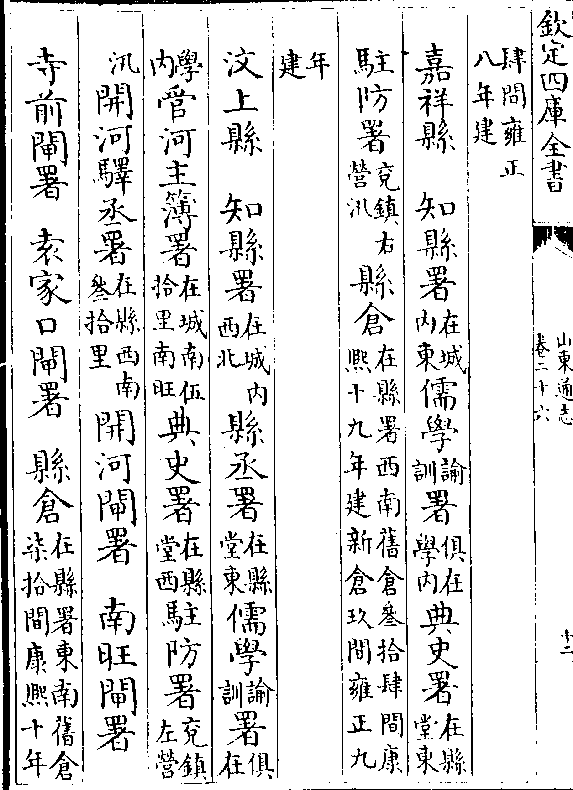 欽定四庫全書
山東通志
卷二十六
十二
肆間雍正
八年建
嘉祥縣　知縣署在城
內東儒學諭
訓署俱在
學內典史署在縣
堂東
駐防署兖鎮右
營汛縣倉在縣署西南舊倉叄拾肆間康
熙十九年建新倉玖間雍正九
年
建
汶上縣　知縣署在城內
西北縣丞署在縣
堂東儒學諭
訓署俱
在
學
內管河主簿署在城南伍
拾里南旺典史署在縣
堂西駐防署兖鎮
左營
汛開河驛丞署在縣西南
叄拾里開河閘署　南旺閘署
寺前閘署　袁家口閘署　縣倉在縣署東南舊倉
柒拾間康熙十年